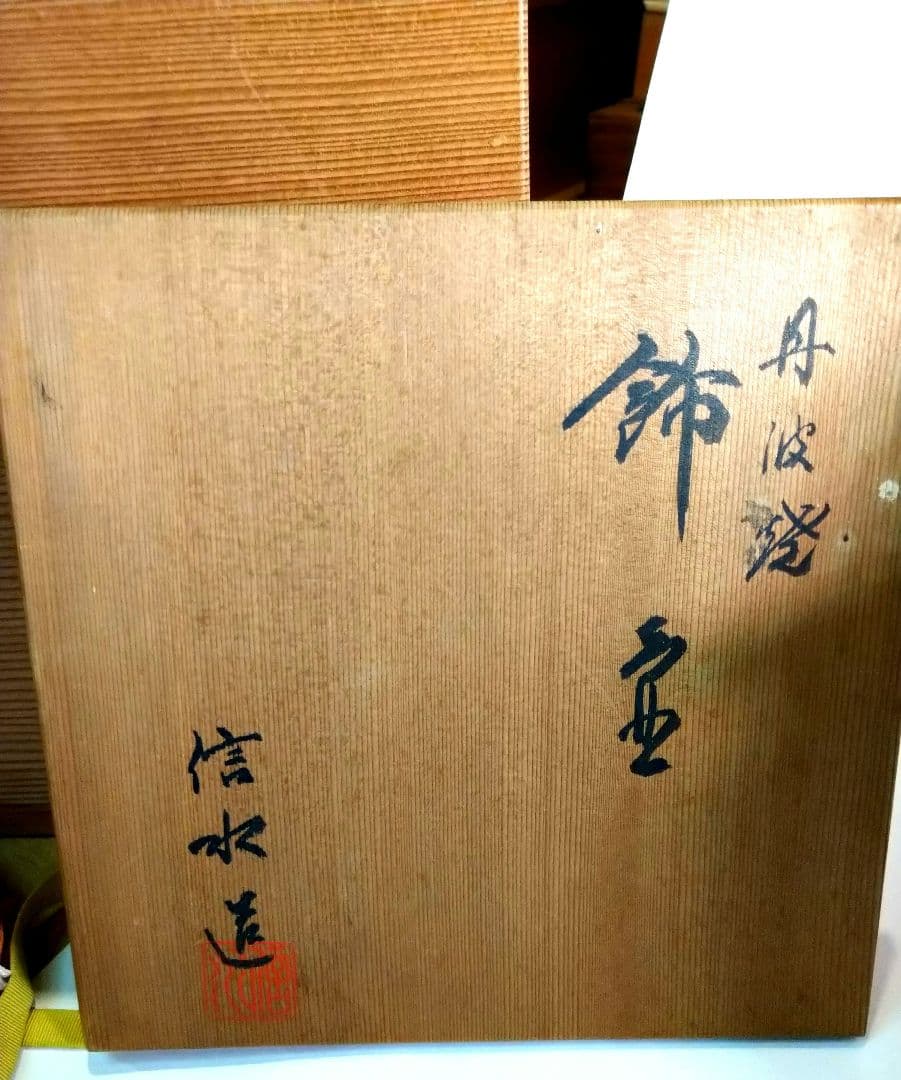 丹波焼
飾壷
信水造